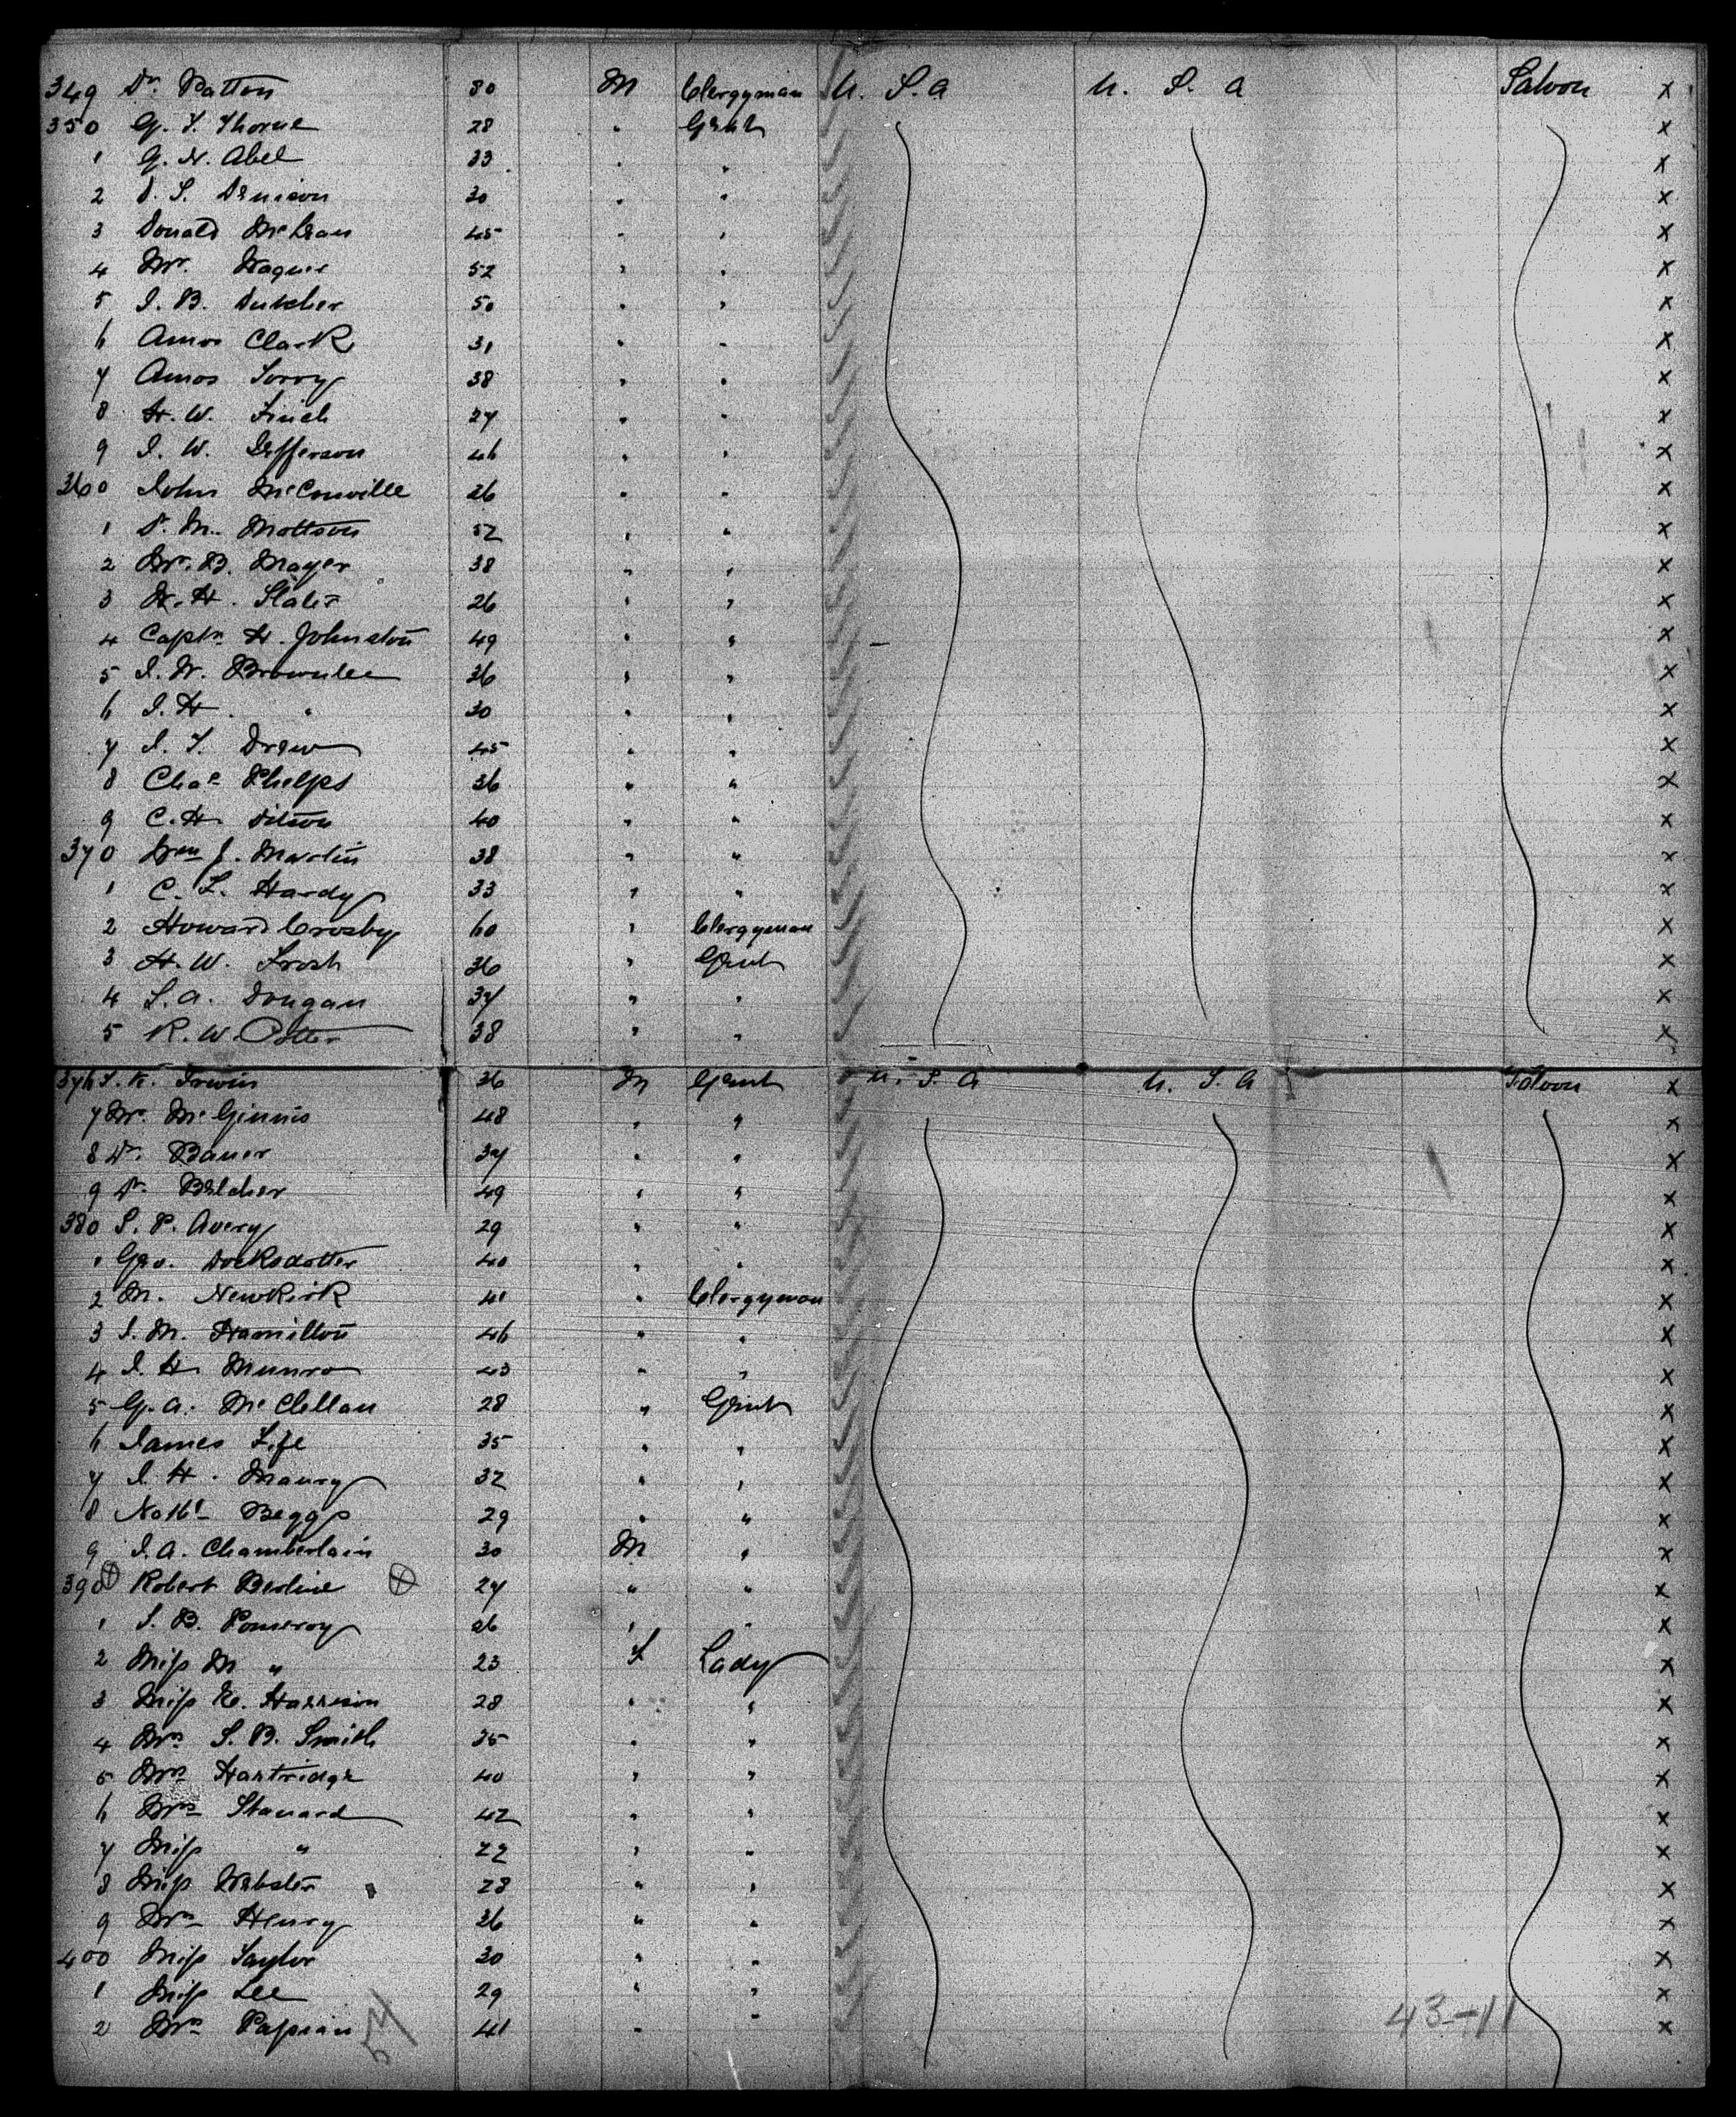 349 Dr. Patton 80 M Clergyman U. S. A U. S. A Saloon x
350 G. T. Thorne 28 " Gent x
1 G. N. Abel 33 " " x
2 D. S. Denison 30 " " x
3 Donald McLean 45 " " x
4 Mr. Wagner 52 " " x
5 J. B. Dutcher 50 " " x
6 Amos Clark 31 " " x
7 Amos 38 " " x
8 H. W. Finch 27 " " x
9 J. W. Jefferson 46 " " x
360 John McConville 26 " " x
1 D. M. Mottson 52 " " x
2 Mr. B. Mayer 38 " " x
3 W. H. Slater 26 " " x
4 Captn H. Johnston 49 " " x
5 J. W. Brownlee 36 " " x
6 J. H. " 30 " " x
7 J. T. Drew 45 " " x
8 Chas Phelps 36 " " x
9 C. H. Ditson 40 " " x
370 Wm J. Martin 38 " " x
1 C. L. Hardy 33 " " x
2 Howard Crosby 60 " Clergyman x
3 H. W. Frost 36 " Gent x
4 S. A. Dougan 37 " " x
5 R. W. Potter 38 " " x
376 S. K. Irwin 36 M Gent U. S. A U. S. A Saloon x
7 Mr. McGinnis 48 " " x
8 Dr. Bauer 37 " " x
9 Dr. Belcher 49 " " x
380 S. P. Avery 29 " " x
1 Geo. Docksdotter 40 " " x
2 M. Newkirk 41 " Clergyman x
3 S. M. Hamilton 46 " " x
4 J. H. Munro 43 " " x
5 G. A. McClellan 28 " Gent x
6 James Life 35 " " x
7 J. H. Maury 32 " " x
8 Nathl Beggs 29 " " x
9 J. A. Chamberlain 30 M " x
390 Robert Berline 27 " " x
1 S. B. Pomeroy 26 " " x
2 Miss M " 23 F Lady x
3 Miss E. Harrison 28 " " x
4 Mrs S. B. Smith 35 " " x
5 Mrs Hartridge 40 " " x
6 Mrs Stanard 42 " " x
7 Miss " 22 " " x
8 Miss Webster 28 " " x
9 Mrs Henry 36 " " x
400 Miss Taylor 30 " " x
1 Miss Lee 29 " " x
2 Mrs Papian 41 " " x
57
43-11